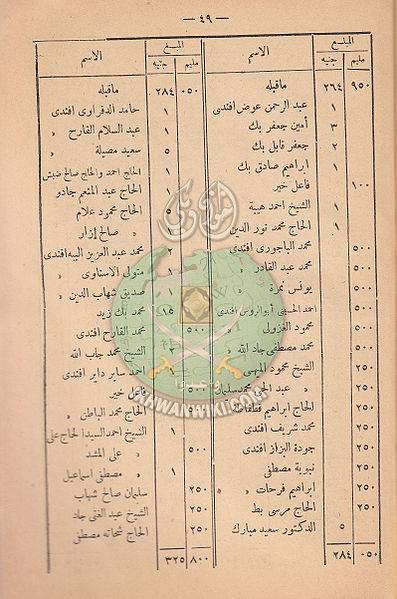 — ٤٩ —
المبلغ الاسم
مليم جنيه
٩٥٠ ٢٦٤ ماقبله
١ عبد الرحمن عوض افندى
٣ أمين جعفر بك
٢ جعفر فايل بك
١ ابراهيم صادق بك
١٠٠ فاعل خير
١ الشيخ احمد هيبة
١ الحاج محمد نور الدين
٥٠٠ محمد الباجورى افندى
٥٠٠ محمد عبد القادر »
٥٠٠ يونس نمرة »
٥٠٠ احمد الحسينى أبوالروس افندى
٥٠٠ محمود الغزولى »
٥٠٠ محمد مصطفى جاد الله »
٢٥٠ الشيخ محمود
٢٥٠ » عبد محمد سليمان
٢٥٠ الحاج ابراهيم
٢٥٠ محمد شريف افندى
٢٥٠ جودة البزاز افندى
٢٥٠ نبوية مصطفى
٢٥٠ ابراهيم فرحات »
٢٥٠ الحاج مرسى بط
٥ الدكتور سعيد مبارك
٠٥٠ ٢٨٤
المبلغ الاسم
مليم جنيه
٠٥٠ ٢٨٤ ماقبله
١ حامد الدفراوى افندى
١ عبد السلام القارح »
٥ سعيد مصيلة »
١ الحاج احمد والحاج صالح
١ الحاج عبد المنعم جادو
٥ الحاج محمود علام
» صالح إزار
٢ محمد عبد العزيز افندى
١ متولى الاسناوى »
١ صديق شهاب الدين »
١٥ محمد بك زيد
٥٠٠ محمد القارح افندى
٢ الشيخ محمد جاب الله
١ احمد ساير داير افندى
فاعل خير
٥٠ الحاج محمد الباطن »
١ الشيخ احمد السيد الحاج على
٥٠٠ » على المشد
١ » مصطفى اسماعيل
٢٥٠ سلمان صالح شهاب
٢٥٠ الشيخ عبد الغنى جاد
٢٥٠ الحاج شحاته مصطفى
٨٠٠ ٣٢٥
KAWANWIKI.COM